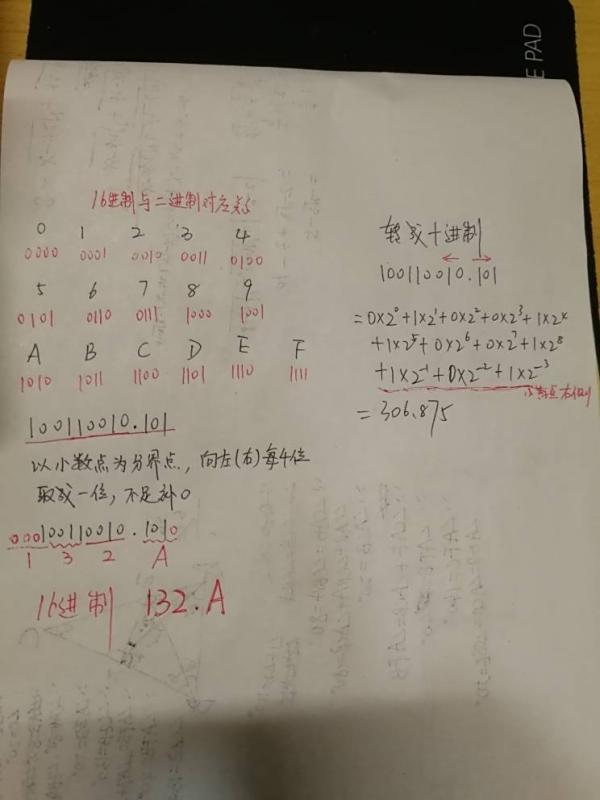 E PAD
16进制与二进制对应关系
0 1 2 3 4
0000 0001 0010 0011 0100
5 6 7 8 9
0101 0110 0111 1000 1001
A B C D E F
1010 1011 1100 1101 1110 1111
100110010.101
以小数点为分界点，向左(右)每4位
取成一位，不足补0
000100110010.1010
1 3 2 A
16进制 132.A
转成十进制
100110010.101
=0×2⁰+1×2¹+0×2²+0×2³+1×2⁴
+1×2⁵+0×2⁶+0×2⁷+1×2⁸
+1×2⁻¹+0×2⁻²+1×2⁻³
小数点右侧
=306.875